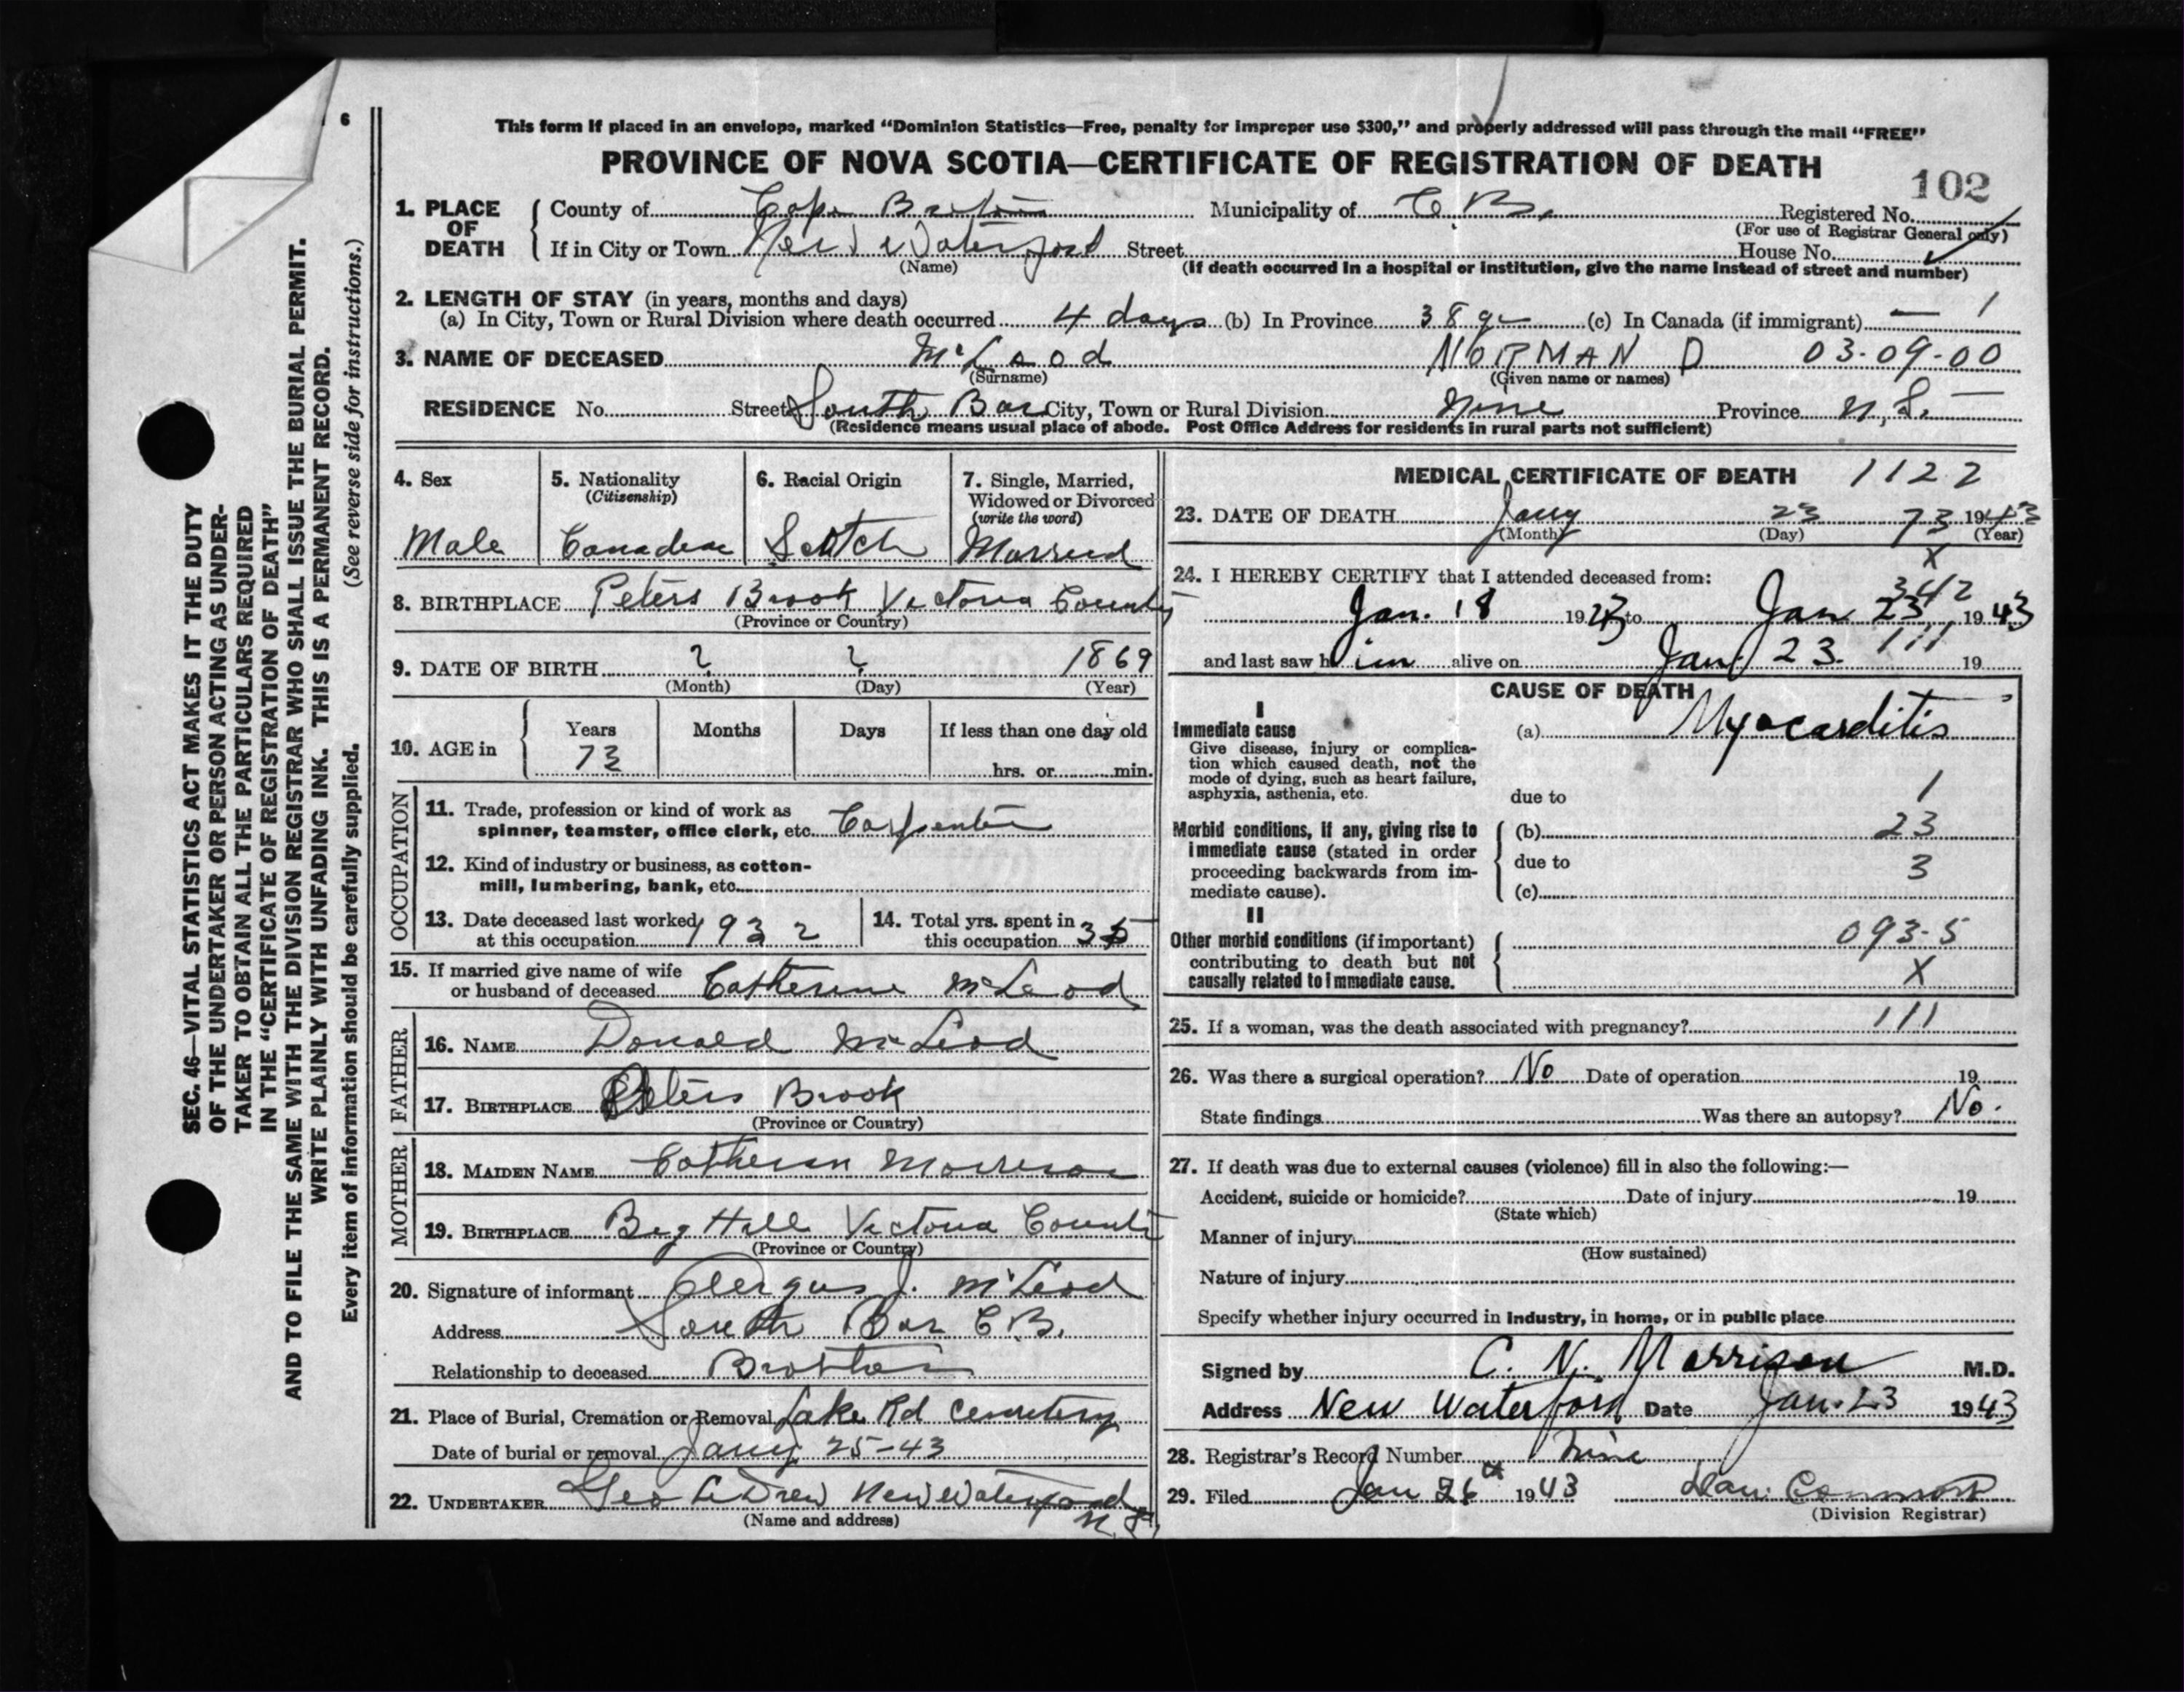 6
This form if placed in an envelope, marked "Dominion Statistics—Free, penalty for improper use $300," and properly addressed will pass through the mail "FREE"
PROVINCE OF NOVA SCOTIA—CERTIFICATE OF REGISTRATION OF DEATH
102
1. PLACE OF DEATH County of Cape Breton Municipality of C. B. Registered No.
(For use of Registrar General only)
If in City or Town New Waterford Street House No.
(Name) (If death occurred in a hospital or institution, give the name instead of street and number)
2. LENGTH OF STAY (in years, months and days) 1
(a) In City, Town or Rural Division where death occurred 4 days (b) In Province 38 yr (c) In Canada (if immigrant) —
3. NAME OF DECEASED McLeod NORMAN D 03-09-00
(Surname) (Given name or names)
RESIDENCE No. Street South Bar City, Town or Rural Division Nine Province N.S.
(Residence means usual place of abode. Post Office Address for residents in rural parts not sufficient)
4. Sex 5. Nationality 6. Racial Origin 7. Single, Married,
(Citizenship) Widowed or Divorced
(write the word)
Male Canadian Scotch Married
8. BIRTHPLACE Peters Brook Victoria County
(Province or Country)
9. DATE OF BIRTH ? ? 1869
(Month) (Day) (Year)
10. AGE in Years Months Days If less than one day old
73 hrs. or min.
OCCUPATION
11. Trade, profession or kind of work as
spinner, teamster, office clerk, etc. Carpenter
12. Kind of industry or business, as cotton-
mill, lumbering, bank, etc.
13. Date deceased last worked at this occupation 1932 14. Total yrs. spent in this occupation 35
15. If married give name of wife
or husband of deceased Catherine McLeod
FATHER
16. NAME Donald McLeod
17. BIRTHPLACE Peters Brook
(Province or Country)
MOTHER
18. MAIDEN NAME Catherin Morrison
19. BIRTHPLACE Big Hill Victoria County
(Province or Country)
20. Signature of informant J. McLeod
Address South Bar C.B.
Relationship to deceased Brother
21. Place of Burial, Cremation or Removal Lake Rd Cemetery
Date of burial or removal Jany 25-43
22. UNDERTAKER Geo LeDrew New Waterford N.S.
(Name and address)
MEDICAL CERTIFICATE OF DEATH 1122
23. DATE OF DEATH Jany 23 73 1943
(Month) (Day) (Year)
X
24. I HEREBY CERTIFY that I attended deceased from:
342
Jan. 18 1943 to Jan 23, 1943
and last saw him alive on Jan 23. 111 19
CAUSE OF DEATH
I
Immediate cause (a) Myocarditis
Give disease, injury or complica-
tion which caused death, not the
mode of dying, such as heart failure,
asphyxia, asthenia, etc. due to 1
Morbid conditions, if any, giving rise to (b) 23
immediate cause (stated in order
proceeding backwards from im- due to 3
mediate cause). (c)
II
Other morbid conditions (if important) 093-5
contributing to death but not
causally related to immediate cause. X
25. If a woman, was the death associated with pregnancy? 111
26. Was there a surgical operation? No Date of operation 19
State findings Was there an autopsy? No.
27. If death was due to external causes (violence) fill in also the following:—
Accident, suicide or homicide? Date of injury 19
(State which)
Manner of injury
(How sustained)
Nature of injury
Specify whether injury occurred in industry, in home, or in public place
Signed by C. N. Morrison M.D.
Address New Waterford Date Jan. 23 1943
28. Registrar's Record Number Nine
29. Filed Jan 26th 1943 Dan
(Division Registrar)
SEC. 46—VITAL STATISTICS ACT MAKES IT THE DUTY
OF THE UNDERTAKER OR PERSON ACTING AS UNDER-
TAKER TO OBTAIN ALL THE PARTICULARS REQUIRED
IN THE "CERTIFICATE OF REGISTRATION OF DEATH"
AND TO FILE THE SAME WITH THE DIVISION REGISTRAR WHO SHALL ISSUE THE BURIAL PERMIT.
WRITE PLAINLY WITH UNFADING INK. THIS IS A PERMANENT RECORD.
Every item of information should be carefully supplied. (See reverse side for instructions.)